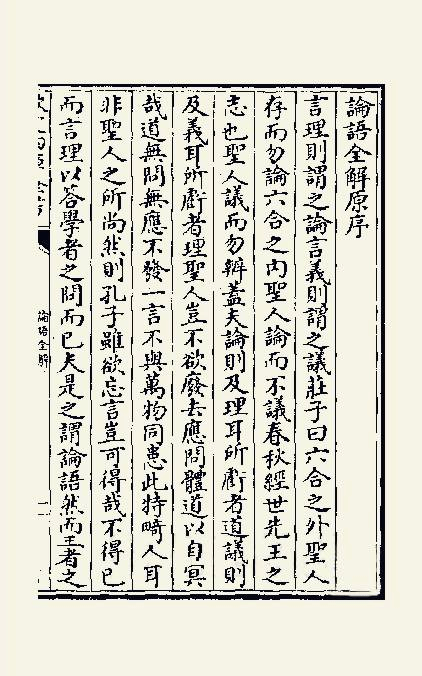 論語全解原序
言理則謂之論言義則謂之議莊子曰六合之外聖人
存而勿論六合之内聖人論而不議春秋經世先王之
志也聖人議而勿辨蓋夫論則及理耳所虧者道議則
及義耳所虧者理聖人豈不欲廢去應問體道以自冥
哉道無問無應不發一言不與萬物同患此特畸人耳
非聖人之所尚然則孔子雖欲忘言豈可得哉不得已
而言理以答學者之問而已夫是之謂論語然而王者之
論語全解